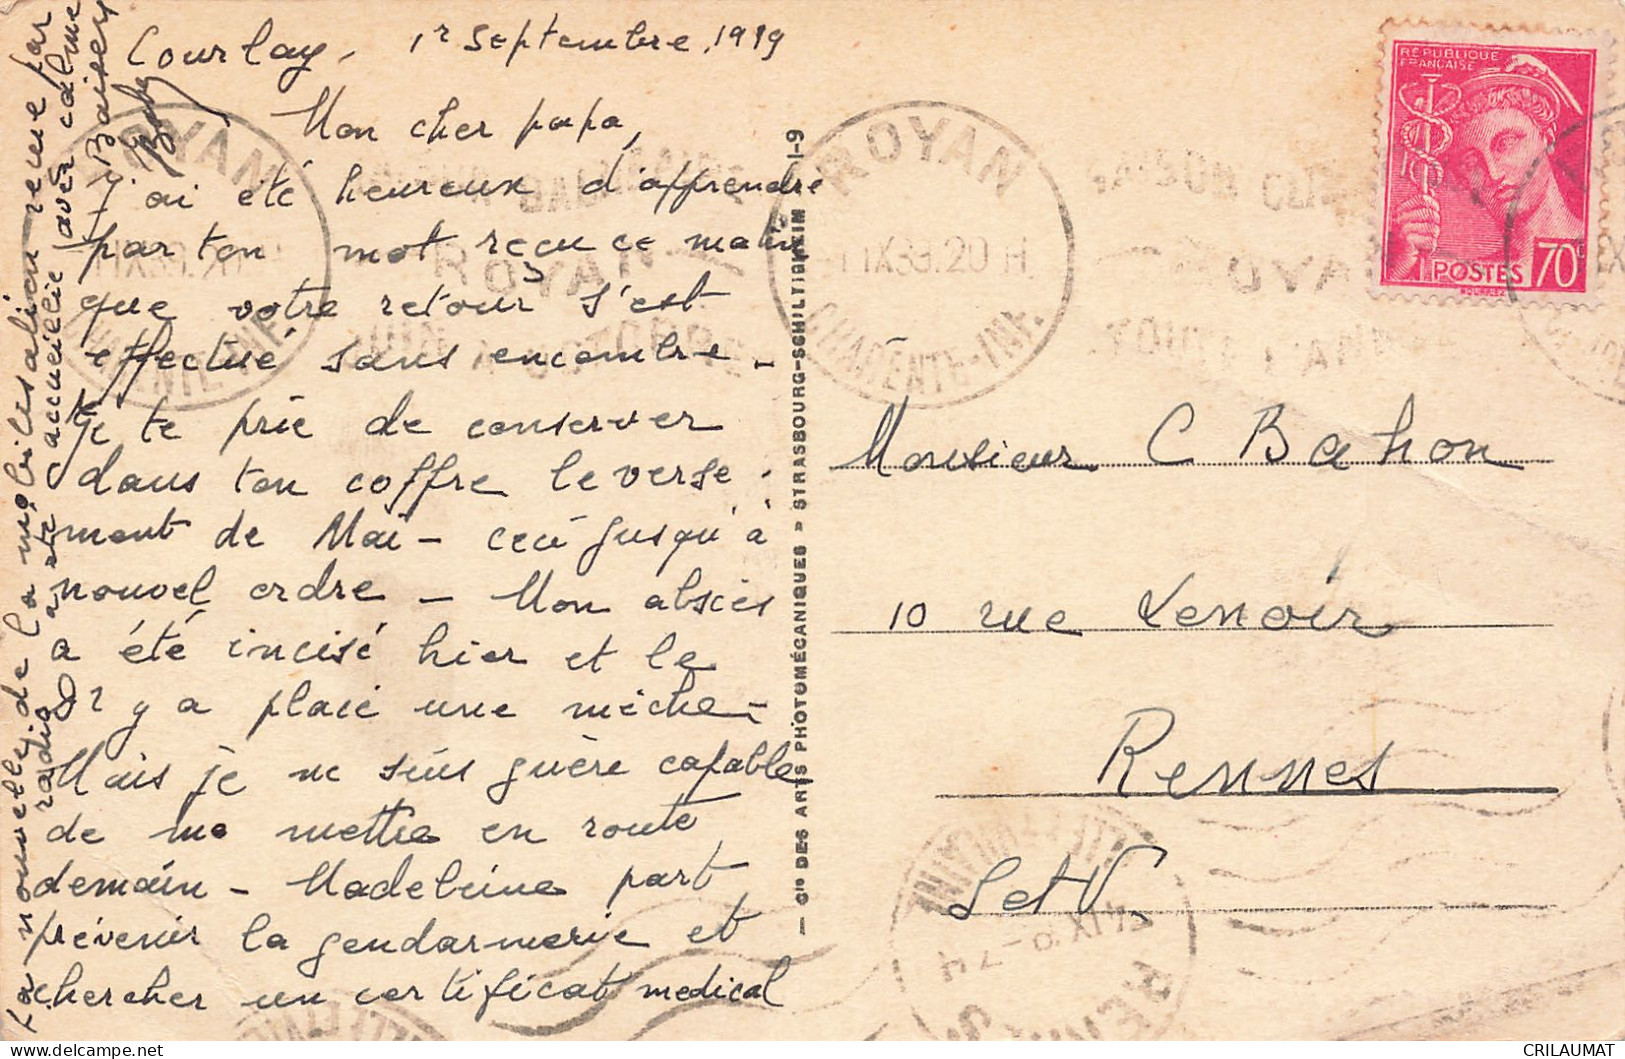 Courlay, 1r Septembre 1939
Mon cher papa,
J'ai été heureux d'apprendre
par ton mot reçu ce matin
que votre retour s'est
effectué sans encombre -
Je te prie de conserver
dans ton coffre le verse-
ment de Mai - ceci jusqu'à
nouvel ordre - Mon abscès
a été incisé hier et le
Dr y a placé une mèche -
Mais je ne suis guère capable
de me mettre en route
demain - Madeleine part
prévenir la gendarmerie et
chercher un certificat medical
La nouvelle de la mobilisation venue par
radio a été accueillie avec calme
Baisers
- Cie DES ARTS PHOTOMÉCANIQUES » STRASBOURG-SCHILTIGHEIM I-9
ROYAN
IX39.20 H.
CHARENTE-INF.
ROYAN
RÉPUBLIQUE
FRANÇAISE
POSTES 70c
Monsieur C Bahon
10 rue Lenoir
Rennes
I et V.
CRILAUMAT